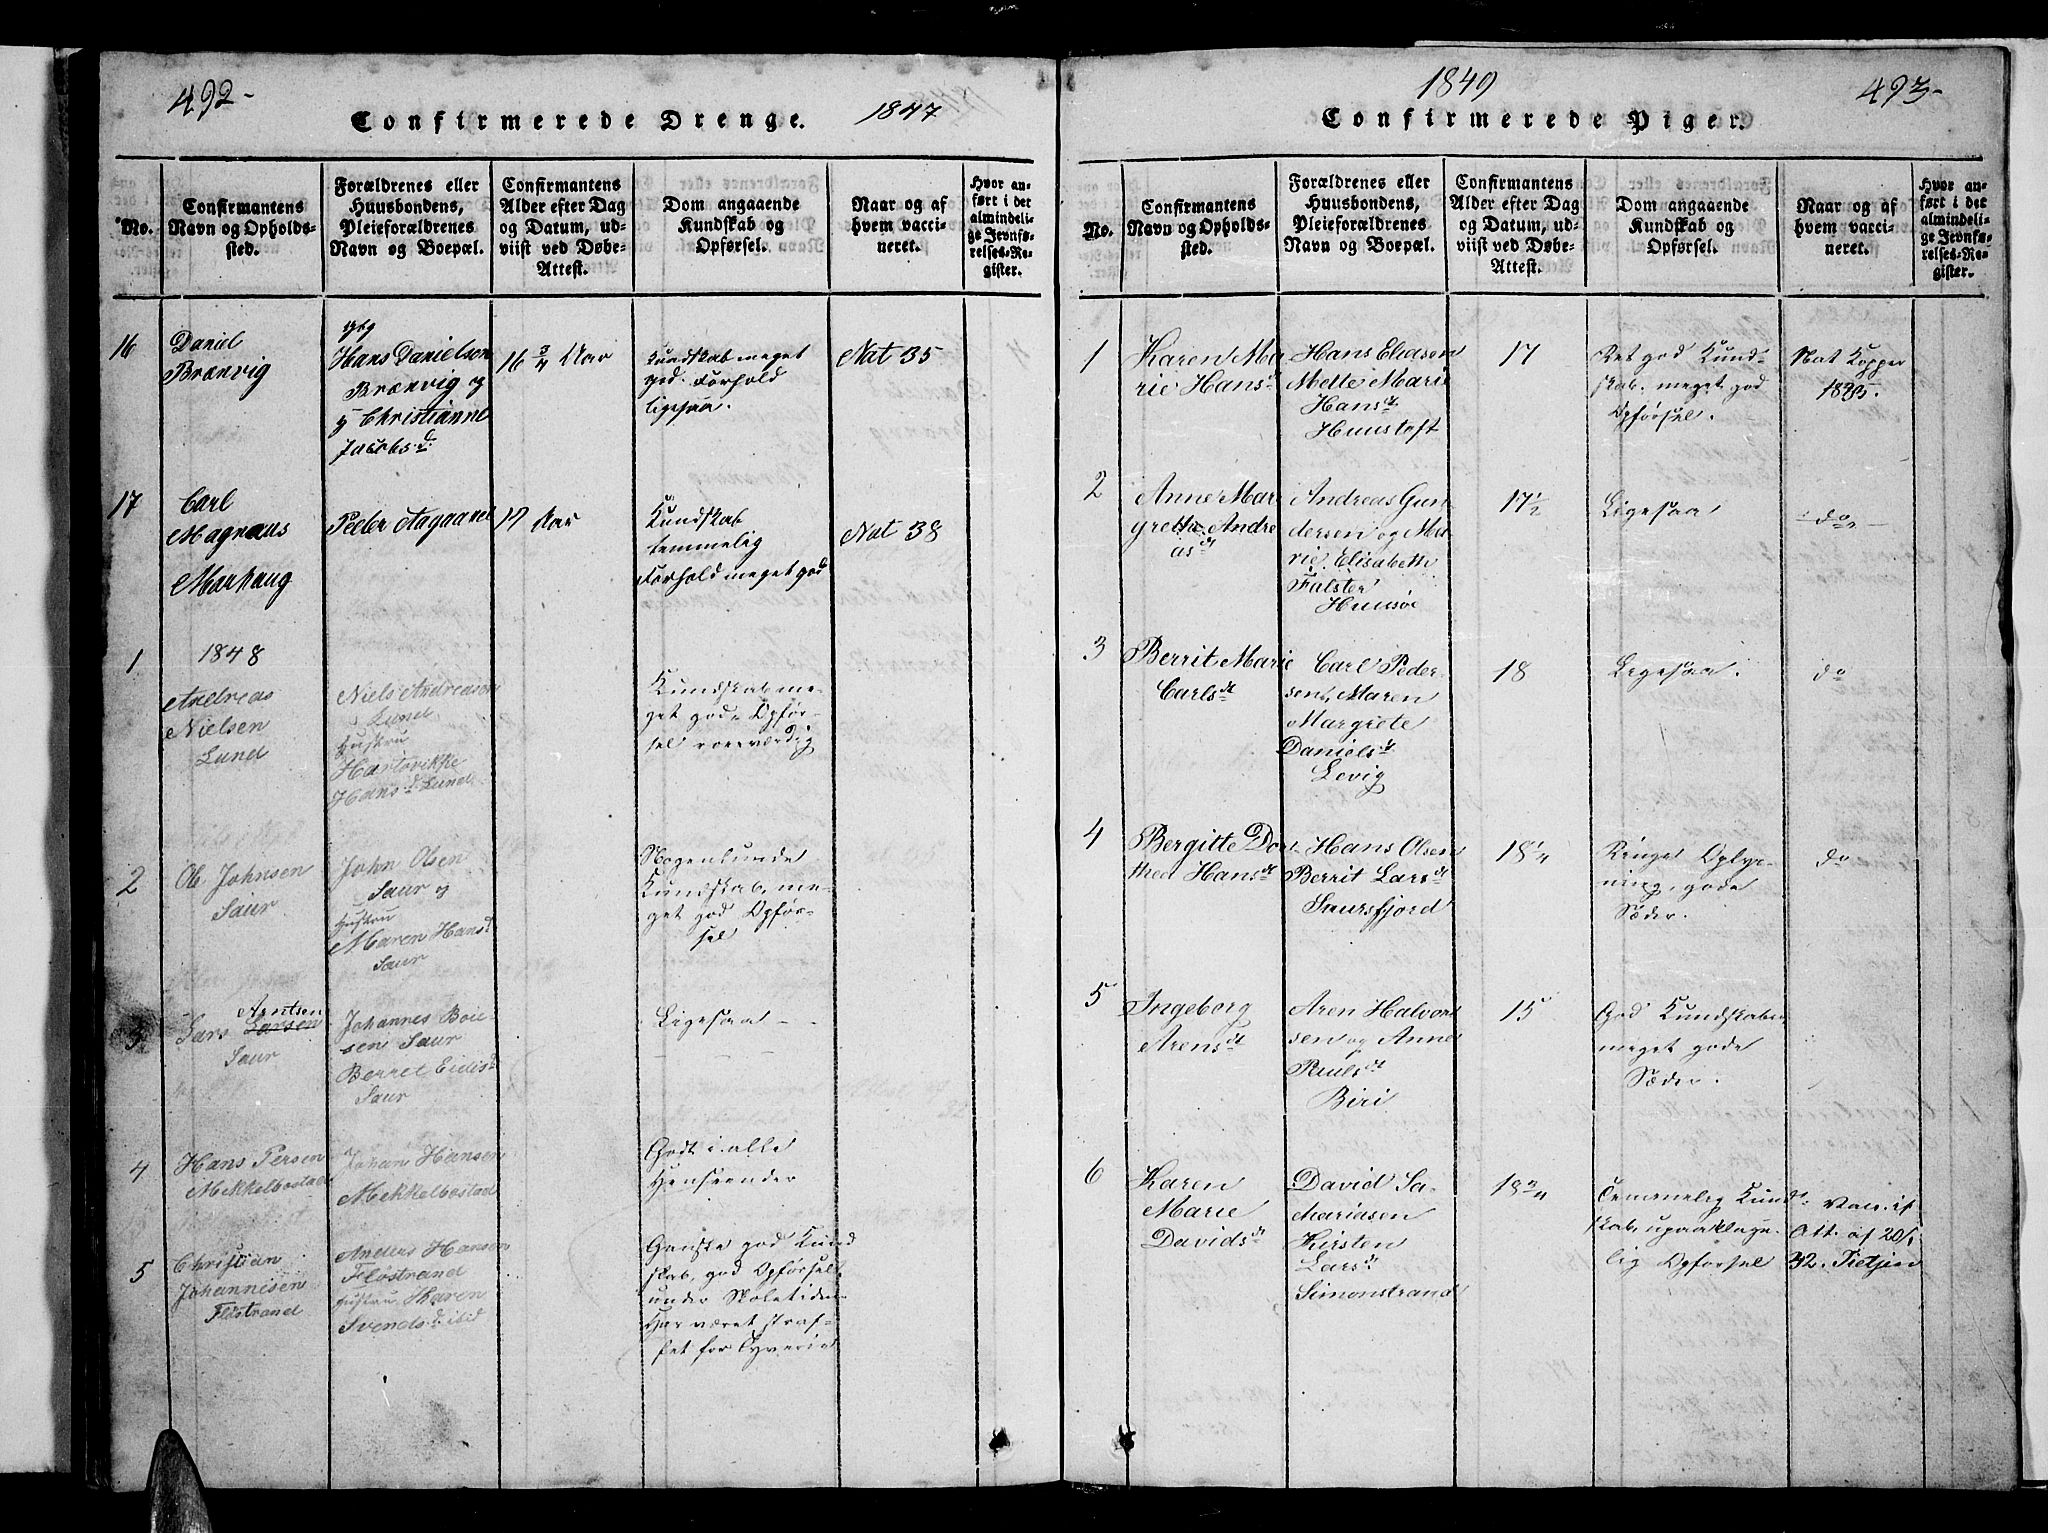 492-
Confirmerede Drenge. 1847
No.
Confirmantens
Navn og Opholds-
sted.
Forældrenes eller
Huusbondens,
Pleieforældrenes
Navn og Boepæl.
Confirmantens
Alder efter Dag
og Datum, ud-
viist ved Døbe-
Attest.
Dom angaaende
Kundskab og
Opførsel.
Naar og af
hvem vacci-
neret.
Hvor an-
ført i det
almindeli-
ge Jevnfø-
relses-Re-
gister.
16
Daniel
Brænvig
Hans Danielsen
Brænvig og
Christianne
Jacobsd.
16 3/4 Aar
Kundskab meget
god. Forhold
ligesaa.
Nat 35
17
Carl
Magnus
Markaug
Peder Aagaard
17 Aar
Kundskab
temmelig
Forhold meget god
Nat 38
1848
1
Andreas
Nielsen
Lund
Niels Andreasen
Lund
Hustru
Hans d Lund
Kundskab me-
get god. Opfør-
sel roesværdig
2
Ole Johnsen
Saur
John Olsen
Saur og
Hustru
Maren Hansd
Saur
Nogenlunde
Kundskab, me-
get god Opfør-
sel
3
Arntsen
Lars Larsen
Saur
Johannes Boie-
sen Saur
Berret
Saur
Ligesaa - -
4
Hans Persen
Mekkelbostad
Johan Hansen
Mekkelbostad
Godt i alle
Henseender
5
Christian
Johannesen
Flostrand
Anders Hansen
Flostrand
Hustru Karen
Svendsd. ibid
Ganske god Kund
skab, god Opførsel
under Skoletiden
Har været straf-
fet for Tyverie
1849
493-
Confirmerede Piger.
No.
Confirmantens
Navn og Opholds-
sted.
Forældrenes eller
Huusbondens,
Pleieforældrenes
Navn og Boepæl.
Confirmantens
Alder efter Dag
og Datum, ud-
viist ved Døbe-
Attest.
Dom angaaende
Kundskab og
Opførsel.
Naar og af
hvem vacci-
neret.
Hvor an-
ført i det
almindeli-
ge Jevnfø-
relses-Re-
gister.
1
Karen Ma
rie Hansd
Hans Eliasen
Mette Marie
Hansd
Hunstoft
17
Ret god Kund-
skab. meget god
Opførsel.
Nat Kopper
1835.
2
Anne Mar
grethe Andre
asd
Andreas Gun
dersen og Ma
rie Elisabeth
Falster
17 1/2
Ligesaa
- do -
3
Berrit Marie
Carlsd
Carl Peder-
sen, Maren
Margrete
Danielsd
Levig
18
Ligesaa.
do
4
Bergitte Dor
thea Hansd
Hans Olsen
Berrit Larsd
Saursfjord
18 1/4
Ringe Oplys-
ning, gode
Sæder.
do
5
Ingeborg
Arensd
Aren Halvor
sen og Anne
Paulsd
Biri
15
God Kundskaber,
meget gode
Sæder.
6
Karen
Marie
Davidsd
David Za-
chariasen
Kirsten
Larsd
Simonstrand
18 3/4
Temmelig Kund
skab, upaaklage-
lig Opførsel
Att. af 20/
32. Tietjen